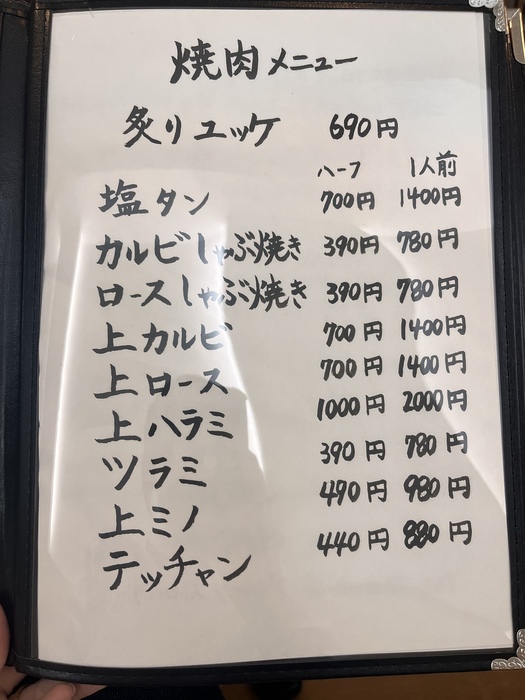 焼肉メニュー
炙りユッケ 690円
ハーフ 1人前
塩タン 700円 1400円
カルビしゃぶ焼き 390円 780円
ロースしゃぶ焼き 390円 780円
上カルビ 700円 1400円
上ロース 700円 1400円
上ハラミ 1000円 2000円
ツラミ 390円 780円
上ミノ 490円 980円
テッチャン 440円 880円